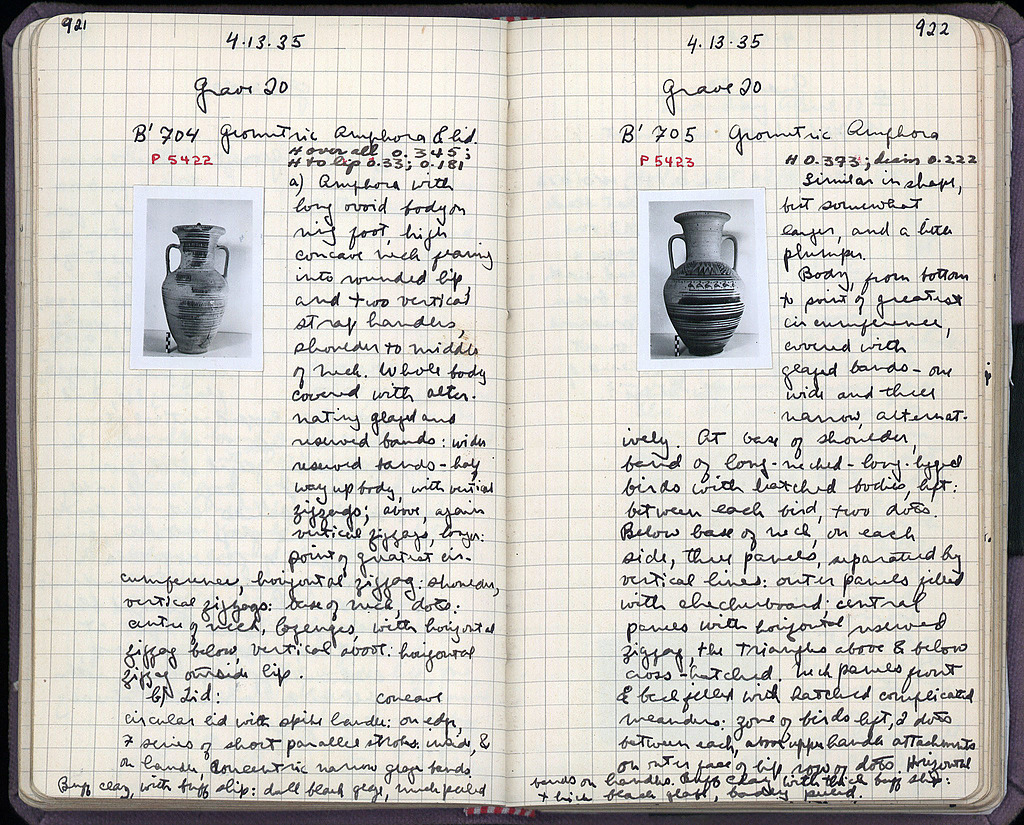 921
4.13.35
Grave 20
B' 704 Geometric Amphora & lid.
P 5422
H over all 0.345;
H to lip 0.33; 0.181
a) Amphora with
long ovoid body on
ring foot, high
concave neck flaring
into rounded lip,
and two vertical
strap handles,
shoulder to middle
of neck. Whole body
covered with alter-
nating glazed and
reserved bands: wider
reserved bands - half
way up body, with vertical
zigzags; above, again
vertical zigzags, longer:
point of greatest cir-
cumference, horizontal zigzag: shoulder,
vertical zigzags: base of neck, dots:
centre of neck, lozenges, with horizontal
zigzag below vertical above: horizontal
zigzag outside lip.
b) Lid: concave
circular lid with spike handle: on edge,
7 series of short parallel strokes: inside, &
on handle, concentric narrow glaze bands.
Buff clay, with buff slip: dull black glaze, much peeled
922
4.13.35
Grave 20
B' 705 Geometric Amphora
P 5423
H 0.373; diam 0.222
Similar in shape,
but somewhat
larger, and a little
plumper.
Body, from bottom
to point of greatest
circumference,
covered with
glazed bands - one
wide and three
narrow, alternat-
ively. At base of shoulder,
band of long-necked-long-legged
birds with hatched bodies, left:
between each bird, two dots.
Below base of neck, on each
side, three panels, separated by
vertical lines: outer panels filled
with checkerboard: central
panels with horizontal reserved
zigzag, the triangles above & below
cross-hatched. Neck panels front
& back filled with hatched complicated
meanders: zone of birds left, 2 dots
between each, above upper handle attachments
on outer face of lip row of dots. Horizontal
bands on handles. Buff clay with thick buff slip:
thick black glaze, badly peeled.